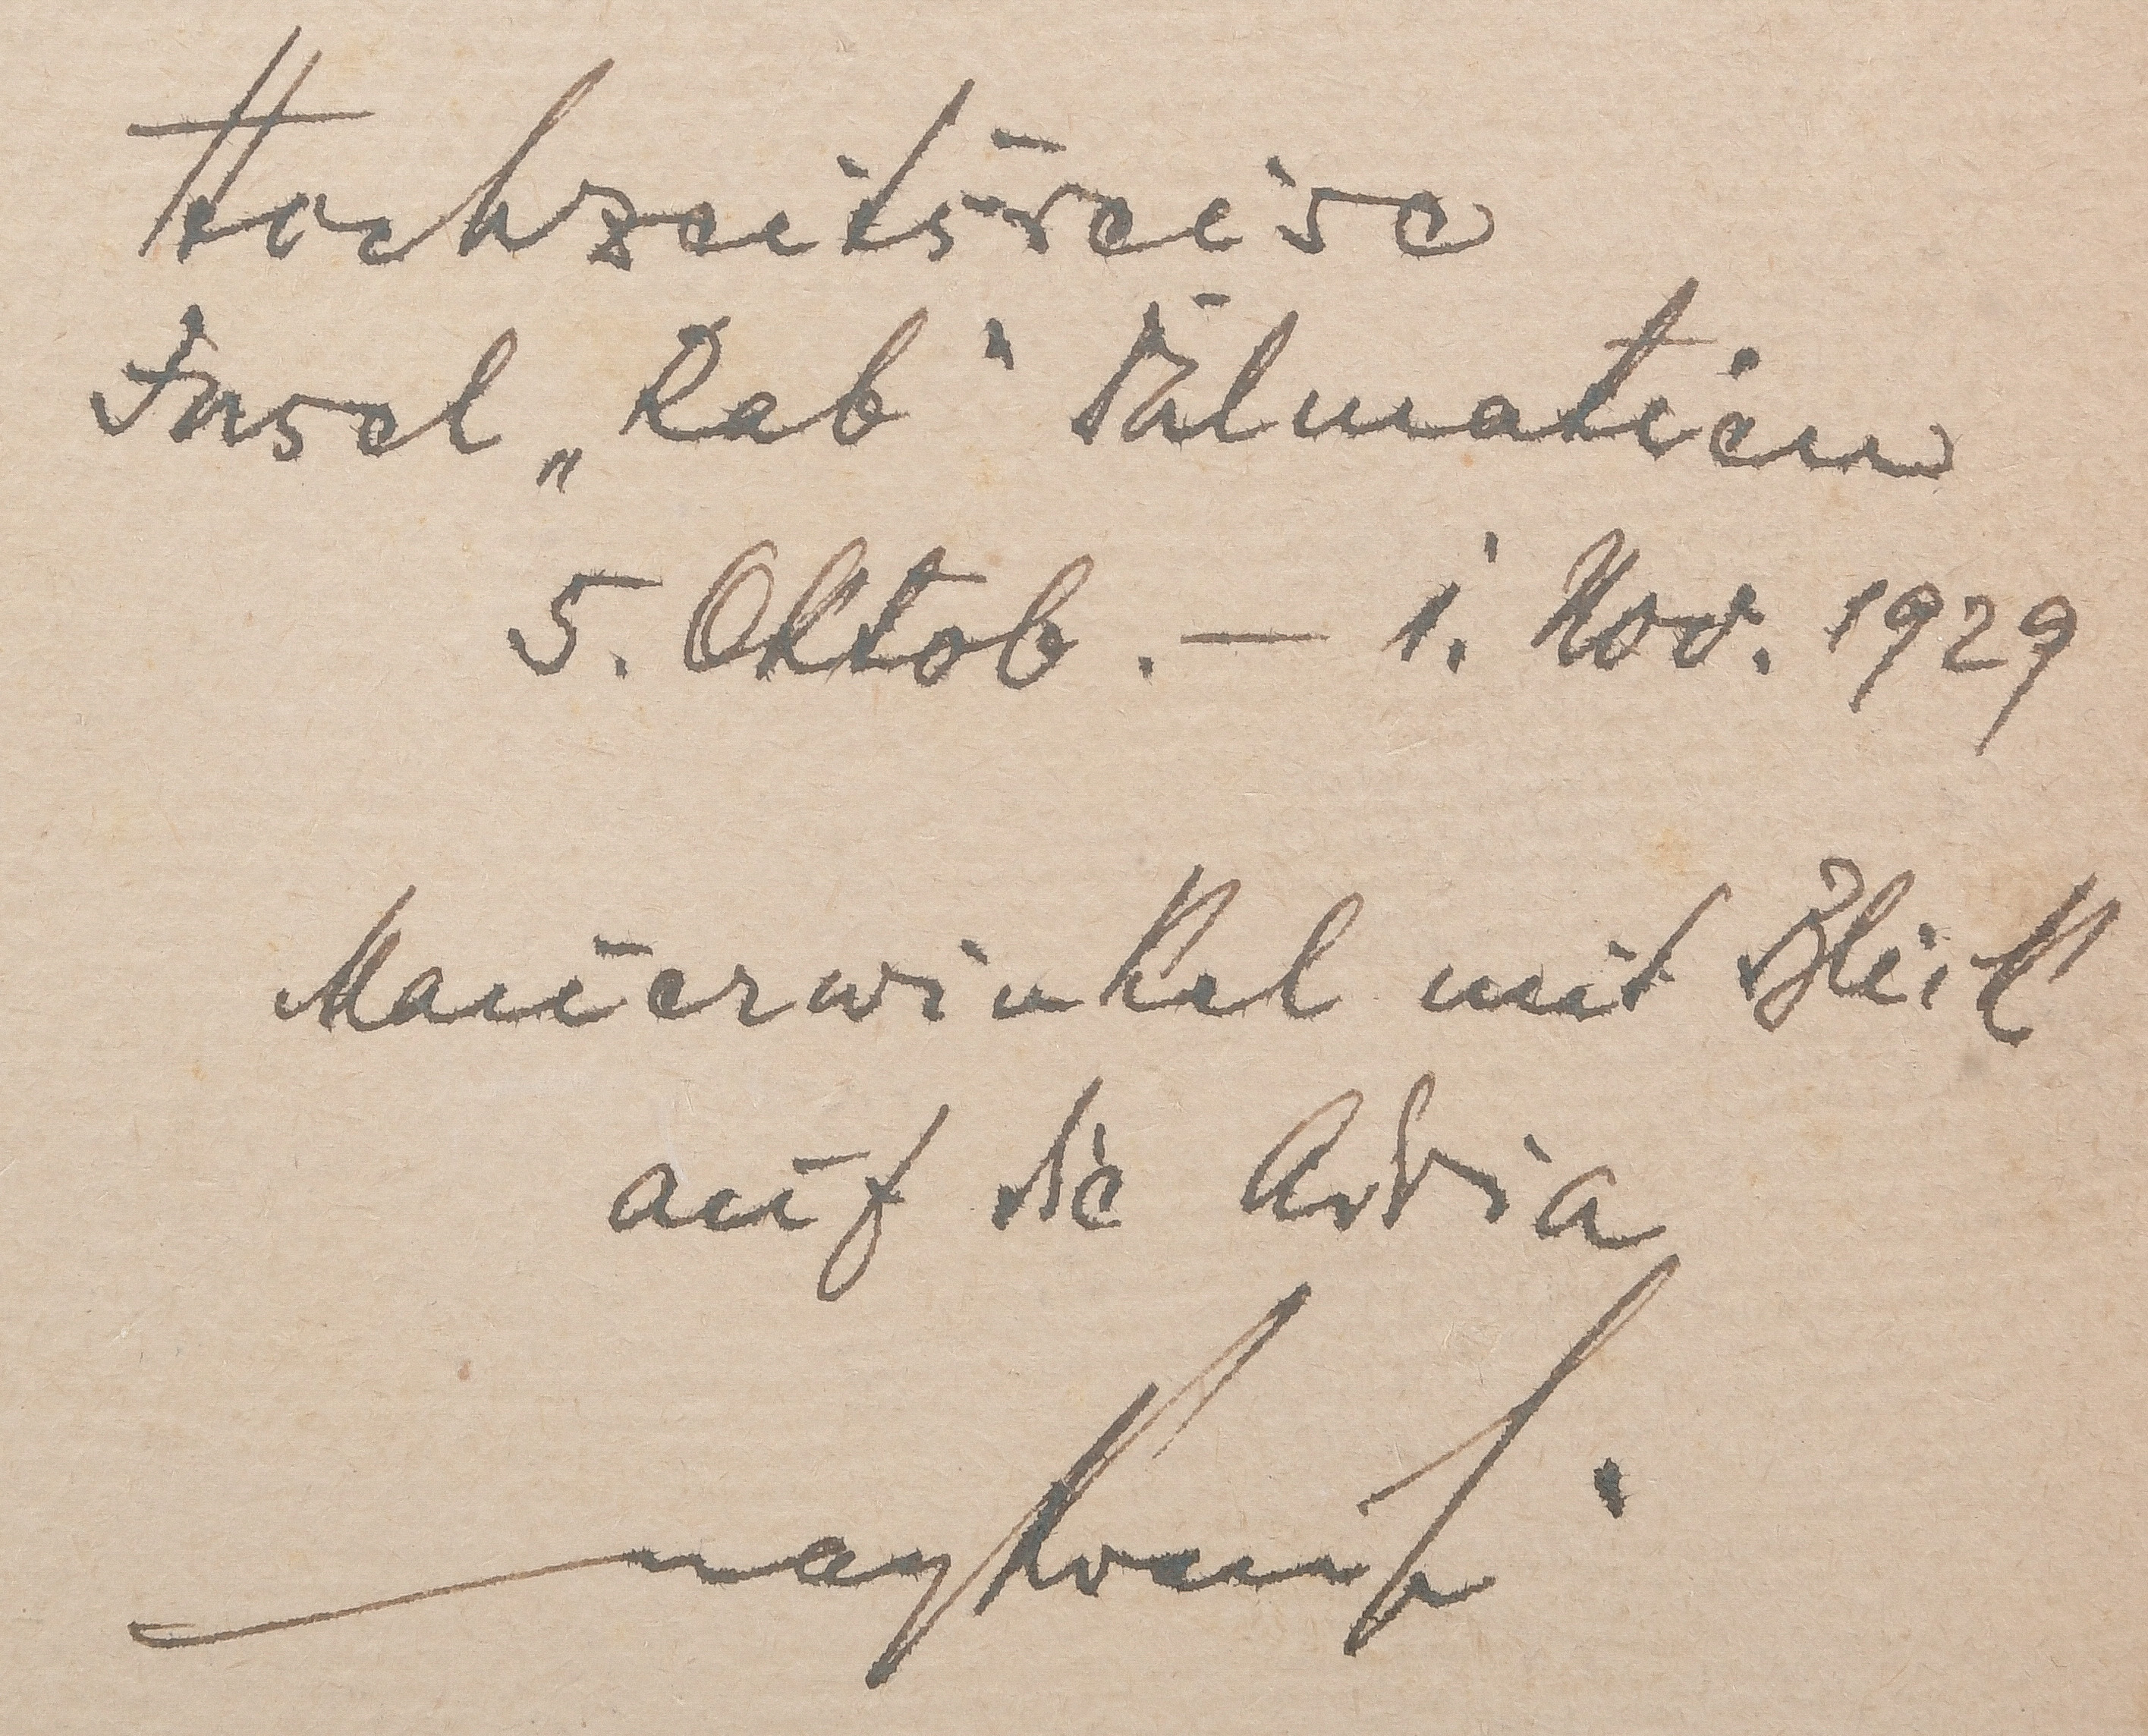 Hochzeitsreise
Insel „Rab“ Dalmatien
5. Oktob. — 1. Nov. 1929
Mauerwinkel mit Blick
auf die Adria